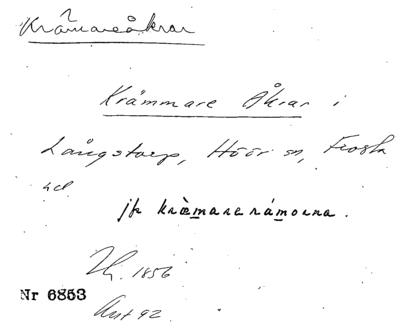 Krämareåkrar
Krämmare Åkrar i
Långstorp, Höör sn, Frosta
hd
jfr kræmareråmorna.
1856
Nr 6853
Ant 92